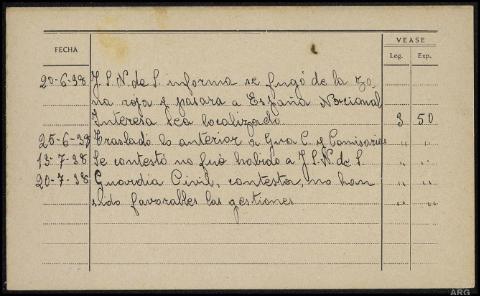 VEASE
FECHA Leg. Exp.
20-6-38 J.S.N. de S. informa se fugó de la zo-
na roja y pasara a España Nacional
Interesa sea localizado. 3 50
25-6-38 Traslado lo anterior a Gua C. y Comisarias " "
13-7-38 Se contestó no fué habido a J.S.N. de S. " "
20-7-38 Guardia Civil, contesta, no han " "
sido favorables las gestiones " "
ARG